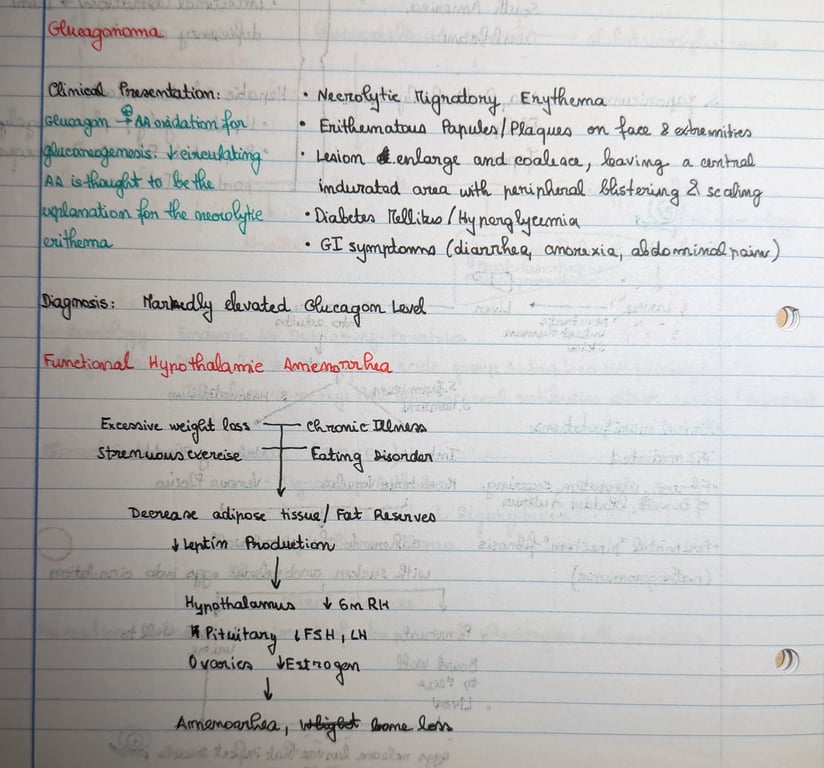 Glucagonoma
Clinical Presentation:
Glucagon ⊕→ AA oxidation for
gluconeogenesis. ↓ circulating
AA is thought to be the
explanation for the necrolytic
erithema
• Necrolytic Migratory Erythema
• Erithematous Papules/Plaques on face & extremities
• Lesion enlarge and coalesce, leaving a central
indurated area with peripheral blistering & scaling
• Diabetes Mellitus / Hyperglycemia
• GI symptoms (diarrhea, anorexia, abdominal pain)
Diagnosis: Markedly elevated Glucagon Level
Functional Hypothalamic Amenorrhea
Excessive weight loss
Chronic Illness
Strenuous exercise
Eating Disorder
Decrease adipose tissue / Fat Reserves
↓ Leptin Production
Hypothalamus ↓ GnRH
Pituitary ↓ FSH, LH
Ovaries ↓ Estrogen
Ammenorrhea, bone loss